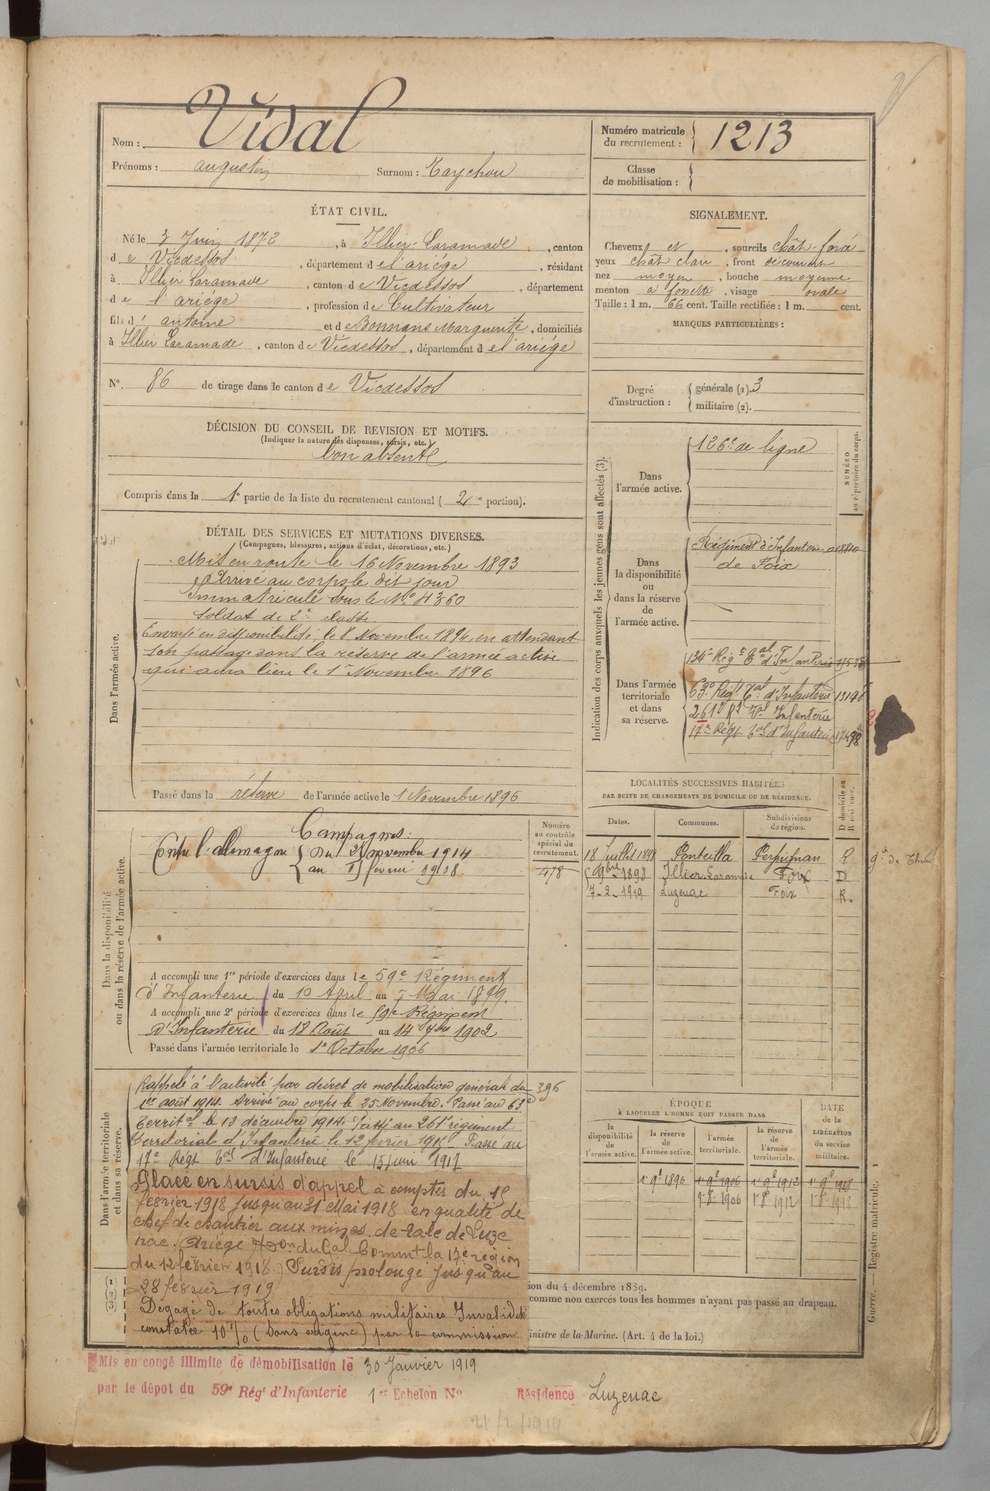 Nom : Vidal
Prénoms : augustin Surnom : Taychou
Numéro matricule du recrutement : 1213
Classe de mobilisation :
ÉTAT CIVIL.
Né le 3 Juin 1872, à Illier-Laramade, canton
de Vicdessos, département de l'ariége, résidant
à Illier Laramade, canton de Vicdessos, département
de l'ariége, profession de Cultivateur
fils d'antoine et de Bonnans Marguerite, domiciliés
à Illier Laramade, canton de Vicdessos, département de l'ariége
N° 86 de tirage dans le canton de Vicdessos
SIGNALEMENT.
Cheveux et, sourcils chât-foncé
yeux chât clair, front découvert
nez moyen, bouche moyenne
menton à fossette, visage ovale
Taille : 1 m. 66 cent. Taille rectifiée : 1 m. cent.
MARQUES PARTICULIÈRES :
Degré d'instruction : générale (1). 3
militaire (2).
DÉCISION DU CONSEIL DE REVISION ET MOTIFS.
(Indiquer la nature des dispenses, sursis, etc.)
bon absent
Compris dans la 1e partie de la liste du recrutement cantonal (2e portion).
DÉTAIL DES SERVICES ET MUTATIONS DIVERSES.
(Campagnes, blessures, actions d'éclat, décorations, etc.)
Dans l'armée active.
Mis en route le 16 Novembre 1893
Arrivé au corps le dit jour
Immatriculé sous le No 4360
Soldat de 2e classe.
Envoyé en disponibilité le 8 Novembre 1894 en attendant
son passage dans la réserve de l'armée active
qui aura lieu le 1er Novembre 1896
Passé dans la réserve de l'armée active le 1 Novembre 1896
Indication des corps auxquels les jeunes gens sont affectés (3).
NUMÉRO au répertoire du corps.
Dans l'armée active.
126e de ligne
Dans la disponibilité ou dans la réserve de l'armée active.
Régiment d'Infanterie
de Foix
Dans l'armée territoriale et dans sa réserve.
134e Régt Tal d'Infanterie
63e Régt Tal d'Infanterie
261e Rt Tal Infanterie
17e Régt Tal d'Infanterie
LOCALITÉS SUCCESSIVES HABITÉES
PAR SUITE DE CHANGEMENTS DE DOMICILE OU DE RÉSIDENCE.
Dates. Communes. Subdivisions de région. D domicile ou R résidence.
18 Juillet Ponteilla Perpignan R
Illier-Laramade Foix D
7-2-1919 Luzenac Foix R.
Dans la disponibilité ou dans la réserve de l'armée active.
Numéro au contrôle spécial du recrutement.
478
Campagnes :
Contre l'Allemagne du 25 novembre 1914
au février 1918
A accompli une 1re période d'exercices dans le 59e Régiment
d'Infanterie du 10 April au 7 Mai 1899.
A accompli une 2e période d'exercices dans le 59e Régiment
d'Infanterie du 18 Août au 14 7bre 1902
Passé dans l'armée territoriale le 1er Octobre 1906
Dans l'armée territoriale et dans sa réserve.
Rappelé à l'activité par décret de mobilisation générale du
1er août 1914. Arrivé au corps le 25 Novembre. Passé au 63e
Territal le 13 décembre 1914. Passé au 261e régiment
Territorial d'Infanterie le 12 février Passé au
17e Régt Tal d'Infanterie le 15 juin 1917
396
Placé en sursis d'appel à compter du 15
février 1918 jusqu'au 31 Mai 1918 en qualité de
chef de chantier aux mines de talc de Luze
nac (Ariège du Gal Commt la 17e région
du 12 février 1918) Sursis prolongé jusqu'au
28 février 1919
Dégagé de toutes obligations militaires Invalidité
constatée 10% (sans origine) par la commission
ÉPOQUE
À LAQUELLE L'HOMME DOIT PASSER DANS
la disponibilité de l'armée active. la réserve de l'armée active. l'armée territoriale. la réserve de l'armée territoriale.
DATE de la LIBÉRATION du service militaire.
1 9e 1896 1 9e 1906 1 9e 1912 1 9e 1918
1906 1912 1918
ion du 4 décembre 1889.
comme non exercés tous les hommes n'ayant pas passé au drapeau.
inistre de la Marine. (Art. 4 de la loi.)
Guerre. — Registre matricule. 1
Mis en congé illimité de démobilisation le 30 Janvier 1919
par le dépôt du 59e Régt d'Infanterie 1er Echelon No Résidence Luzenac